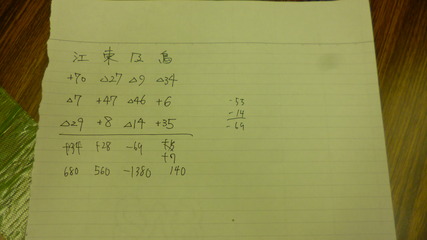 江 東 尺 島
+70 △27 △9 △34
△7 +47 △46 +6
△29 +8 △14 +35
+34 +28 -69
+7
680 560 -1380 140
-55
-14
-69